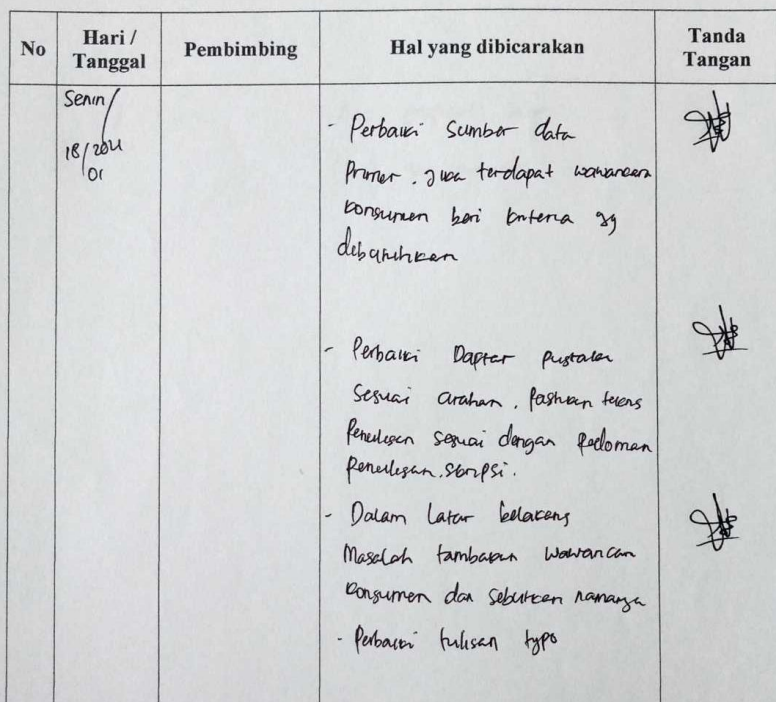 No
Hari /
Tanggal
Pembimbing
Hal yang dibicarakan
Tanda
Tangan
Senin/
18/2021
01
- Perbaiki Sumber data
Primer. Jika terdapat wawancara
konsumen beri kriteria yg
dibutuhkan
- Perbaiki Daftar pustaka
Sesuai arahan. Pastikan teknis
Penulisan sesuai dengan Pedoman
Penulisan skripsi.
- Dalam Latar belakang
Masalah tambahkan wawancara
konsumen dan sebutkan namanya
- Perbaiki tulisan typo